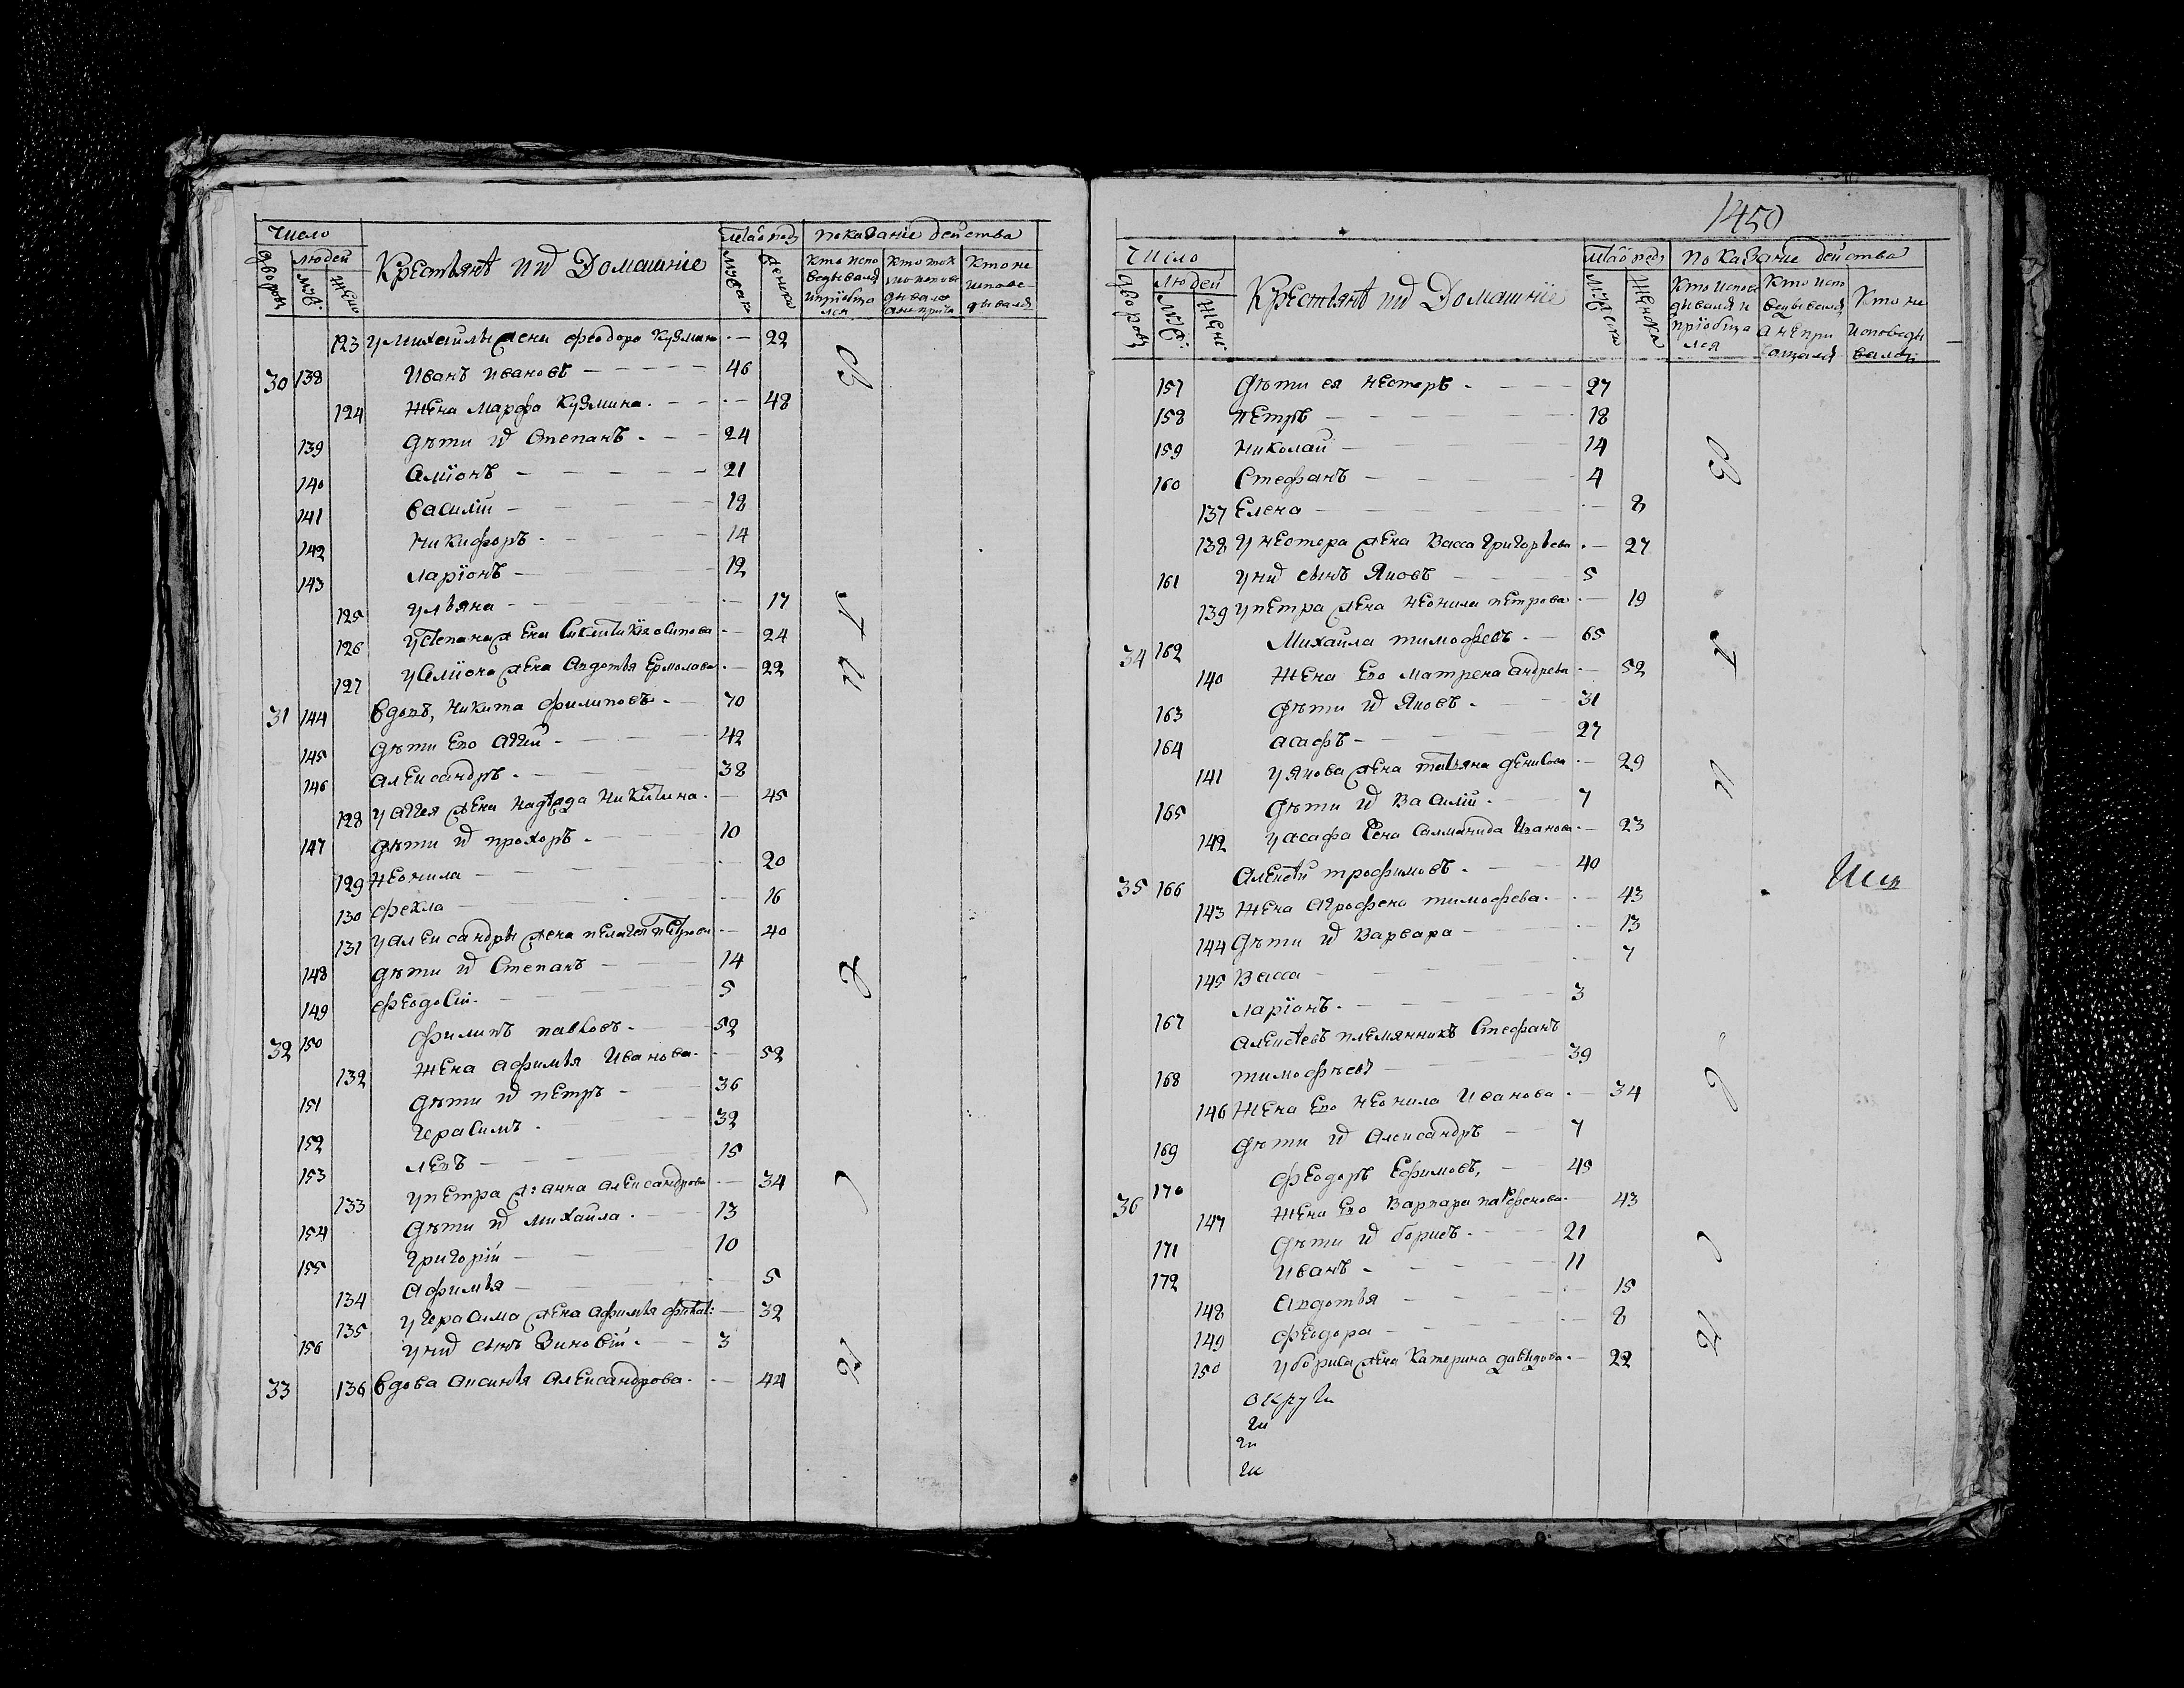 Число
Крестьянъ ихъ Домашніе
показаніе действа
дворовъ
людей
муж:
женс
мужеска
женска
кто испо
ведывался
и пріобща
лся
кто ток
мо испове
дывался
а не пріча
кто не
испове
дывался
123 у Михайлы жена феодора Кузмина - 22
30 138 Иванъ Ивановъ - 46
124 жена Марфа Кузмина - 48
139 дѣти их Степанъ - 24
140 Аліонъ - 21
141 Василіи - 18
142 Никифоръ - 14
143 Ларіонъ - 12
125 Ульяна - 17
126 у Степана жена Осипова - 24
127 у Аліона жена Авдотья Ермолаева - 22
31 144 вдовъ, Никита Филиповъ - 70
145 дѣти его Аггіи - 42
146 Александръ - 38
128 у Аггея жена Никитина - 45
147 дѣти их Прохоръ - 10
129 Неонила - 20
130 Фекла - 16
131 у Александры жена Пелагея Петрова - 40
148 дѣти их Степанъ - 14
149 Феодосіи - 5
32 150 Филипъ Павловъ - 52
132 жена Афимья Иванова - 52
151 дѣти их Петръ - 36
152 Герасимъ - 32
153 Левъ - 15
133 у Петра ж: Анна Александрова - 34
154 дѣти их Михаила - 13
155 Григоріи - 10
134 Афимья - 5
135 у Герасима жена Афимья - 32
156 у них сынъ Зиновіи - 3
33 136 вдова Аксинья Александрова - 44
1450
Число
Крестьянъ ихъ Домашніе
показаніе действа
дворовъ
людей
муж:
женс:
мужеска
женска
кто испове
дывался и
пріобща
лся
кто испо
ведывался
а не при
чащался
кто не
исповеды
вался
157 дѣти ея Нестеръ - 27
158 Петръ - 18
159 Николаи - 14
160 Стефанъ - 4
137 Елена - 8
138 у Нестера жена Васса Григорьева - 27
161 у них сынъ Яковъ - 5
139 у Петра жена Неонила Петрова - 19
34 162 Михаила Тимофеевъ - 65
140 жена его Матрена Андреева - 52
163 дѣти их Яковъ - 31
164 Асафъ - 27
141 у Якова жена Татьяна Денисова - 29
165 дѣти их Василіи - 7
142 у Асафа жена Саламанида Иванова - 23
35 166 Алексѣй Трофимовъ - 40
143 жена Агрофена Тимофеева - 43
144 дѣти их Варвара - 13
145 Васса - 7
167 Ларіонъ - 3
Алексѣевъ племянникъ Стефанъ
168 Тимофѣевъ - 39
146 жена его Неонила Иванова - 34
169 дѣти их Александръ - 7
36 170 Феодоръ Ефимовъ, - 45
147 жена его Варвара Парфенова - 43
171 дѣти их Борисъ - 21
172 Иванъ - 11
148 Авдотья - 15
149 Феодора - 8
150 у Бориса жена Катерина Давыдова - 22
округи